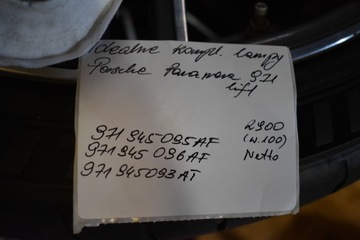 Idealne kompl. lampy
Porsche Panamera 971
lift
971 945 095 AF 2900
971 945 096 AF (w.100)
971 945 093 AT Netto